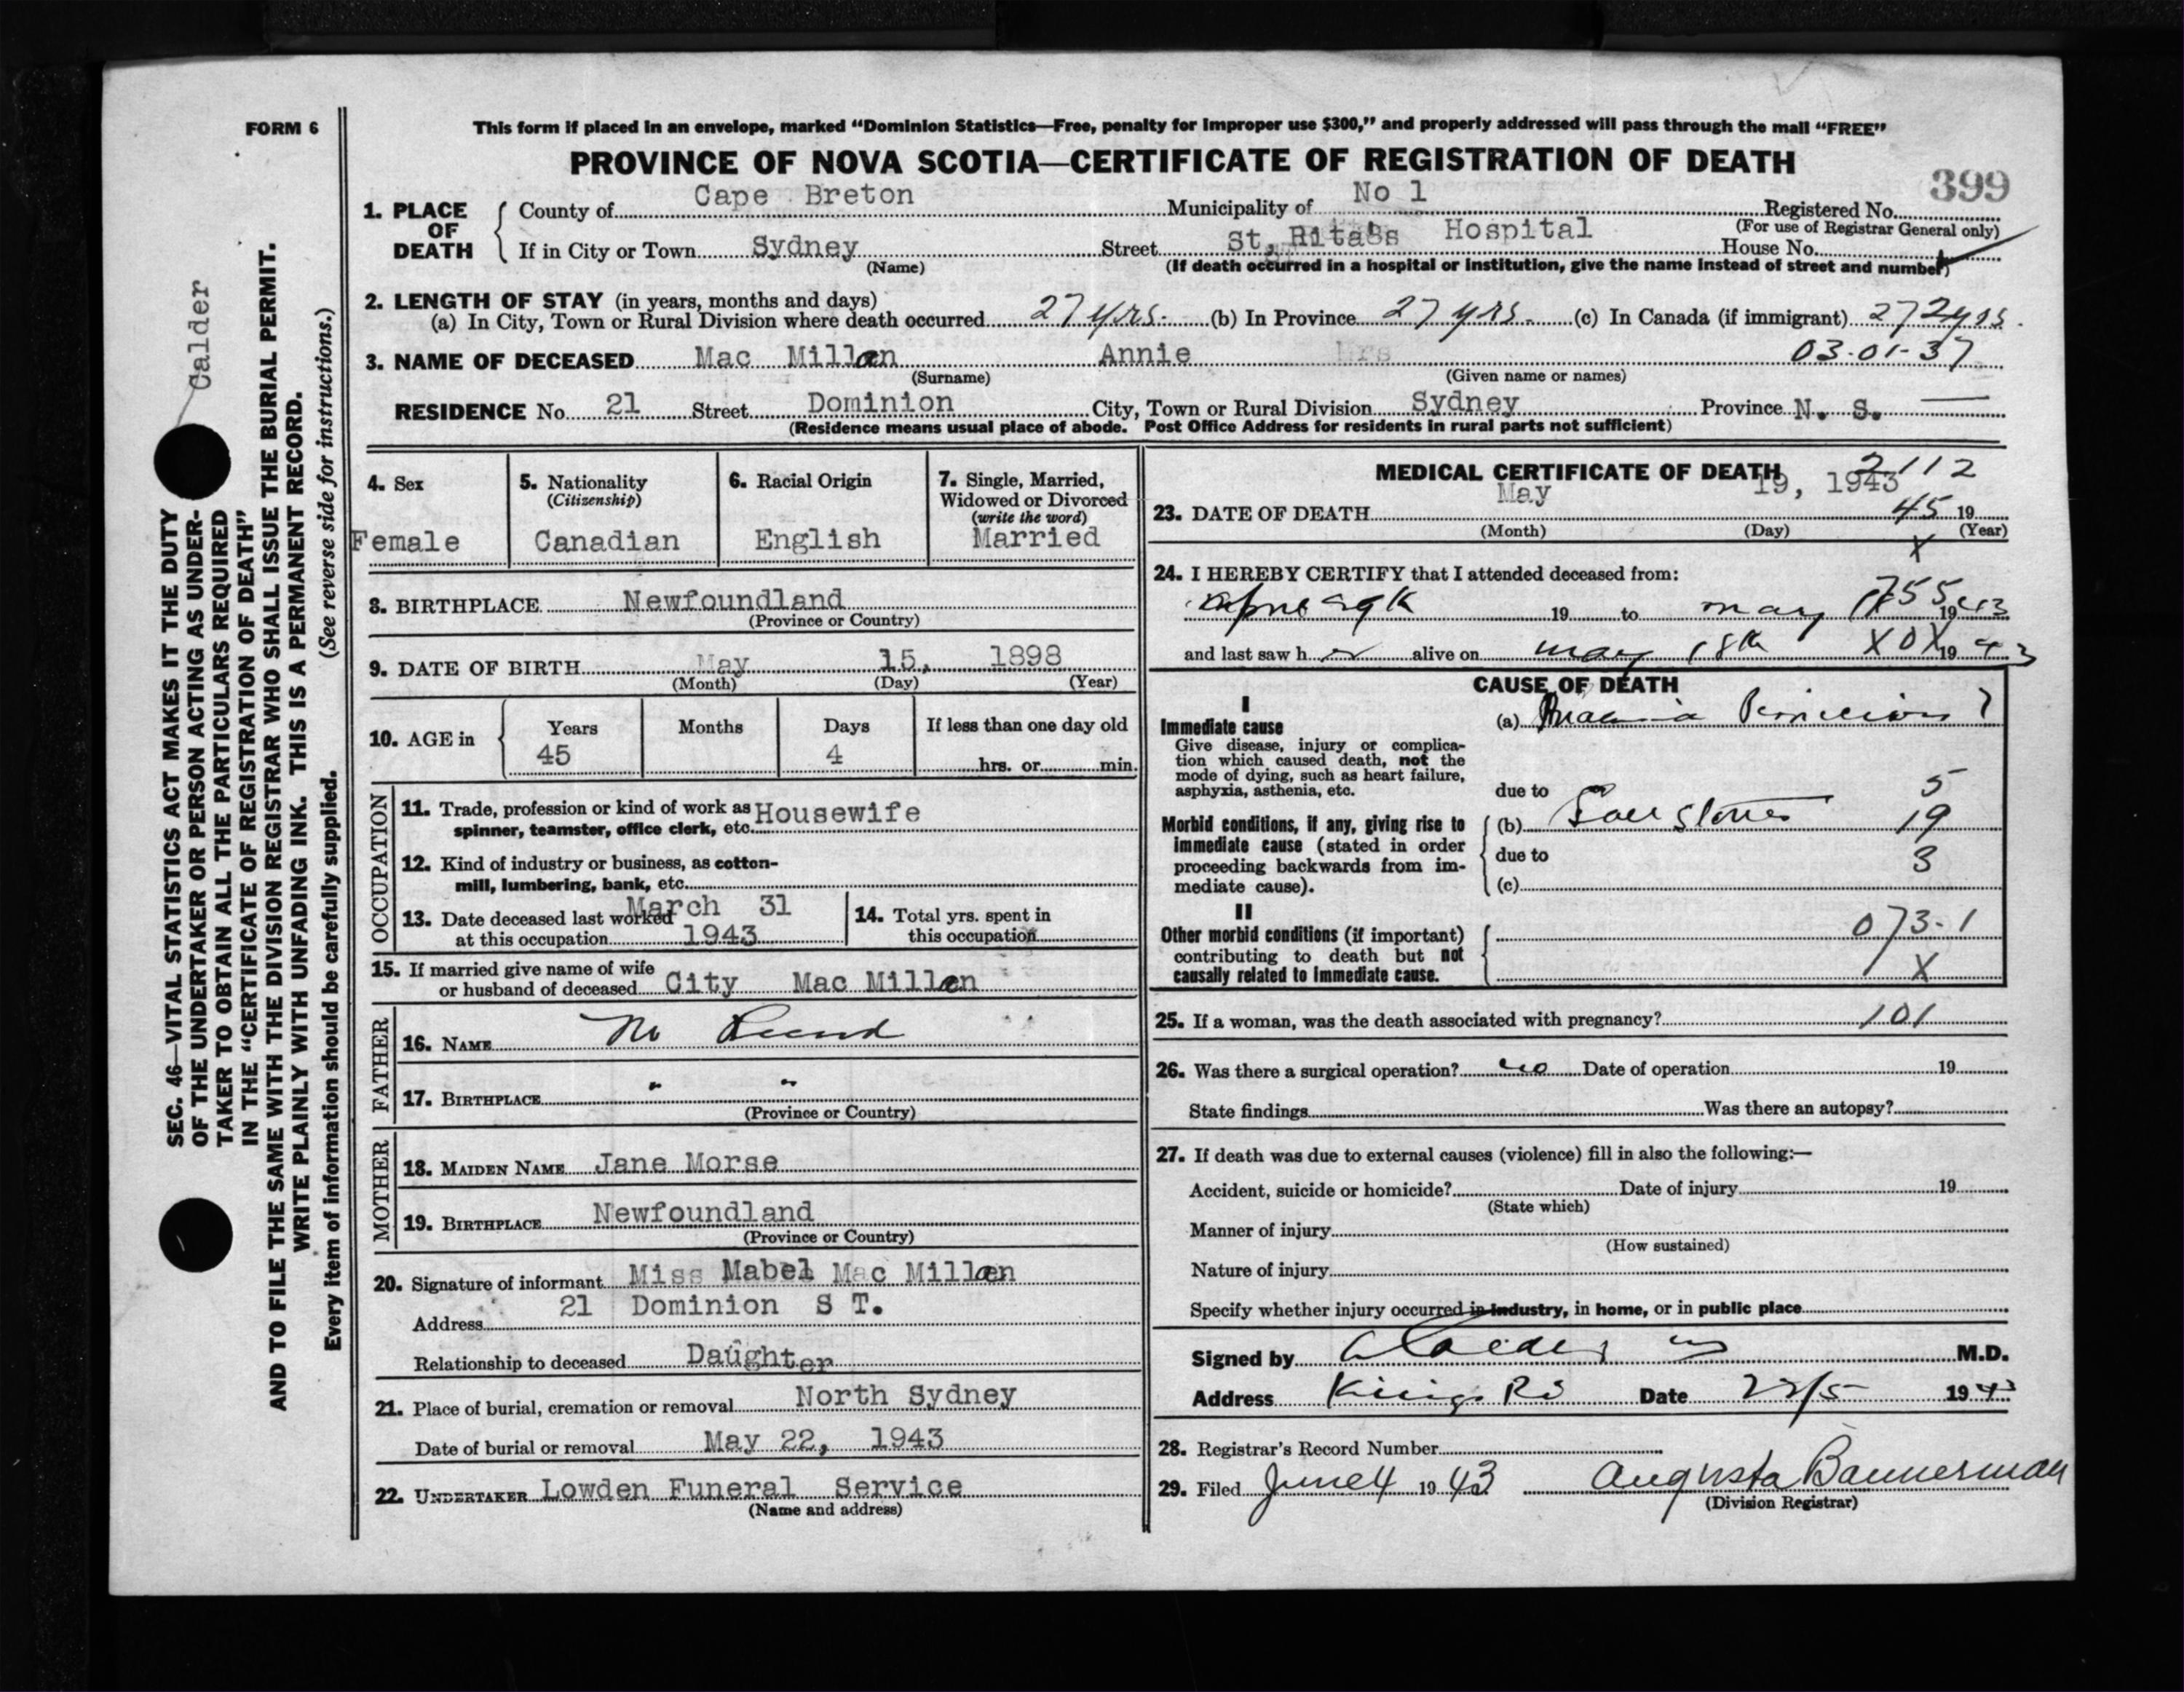 FORM 6
This form if placed in an envelope, marked “Dominion Statistics—Free, penalty for improper use $300,” and properly addressed will pass through the mail “FREE”
PROVINCE OF NOVA SCOTIA—CERTIFICATE OF REGISTRATION OF DEATH
399
1. PLACE OF DEATH
County of Cape Breton Municipality of No 1 Registered No.
(For use of Registrar General only)
If in City or Town Sydney Street St, Rita's Hospital House No.
(Name) (If death occurred in a hospital or institution, give the name instead of street and number)
2. LENGTH OF STAY (in years, months and days)
(a) In City, Town or Rural Division where death occurred 27 yrs. (b) In Province 27 yrs. (c) In Canada (if immigrant) 27 yrs.
3. NAME OF DECEASED Mac Millan Annie Mrs 03-01-37
(Surname) (Given name or names)
RESIDENCE No. 21 Street Dominion City, Town or Rural Division Sydney Province N. S.
(Residence means usual place of abode. Post Office Address for residents in rural parts not sufficient)
4. Sex
Female
5. Nationality
(Citizenship)
Canadian
6. Racial Origin
English
7. Single, Married,
Widowed or Divorced
(write the word)
Married
8. BIRTHPLACE Newfoundland
(Province or Country)
9. DATE OF BIRTH May 15, 1898
(Month) (Day) (Year)
10. AGE in Years Months Days If less than one day old
45 4 hrs. or min.
OCCUPATION
11. Trade, profession or kind of work as Housewife
spinner, teamster, office clerk, etc.
12. Kind of industry or business, as cotton-
mill, lumbering, bank, etc.
13. Date deceased last worked March 31
at this occupation 1943
14. Total yrs. spent in
this occupation
15. If married give name of wife
or husband of deceased City Mac Millan
FATHER
16. NAME No Record
17. BIRTHPLACE " "
(Province or Country)
MOTHER
18. MAIDEN NAME Jane Morse
19. BIRTHPLACE Newfoundland
(Province or Country)
20. Signature of informant Miss Mabel Mac Millan
Address 21 Dominion S T.
Relationship to deceased Daughter
21. Place of burial, cremation or removal North Sydney
Date of burial or removal May 22, 1943
22. UNDERTAKER Lowden Funeral Service
(Name and address)
MEDICAL CERTIFICATE OF DEATH
2112
23. DATE OF DEATH May 19, 1943
45 19
(Month) (Day) (Year)
X
24. I HEREBY CERTIFY that I attended deceased from:
19 to may 1943
755
and last saw her alive on may 18th 1943
X0X
CAUSE OF DEATH
I
Immediate cause
Give disease, injury or complica-
tion which caused death, not the
mode of dying, such as heart failure,
asphyxia, asthenia, etc.
(a) Anaemia Pernicious ?
due to
5
Morbid conditions, if any, giving rise to
immediate cause (stated in order
proceeding backwards from im-
mediate cause).
(b) Gall Stones 19
due to
3
(c)
II
Other morbid conditions (if important)
contributing to death but not
causally related to immediate cause.
073-1
X
25. If a woman, was the death associated with pregnancy? 101
26. Was there a surgical operation? no Date of operation 19
State findings Was there an autopsy?
27. If death was due to external causes (violence) fill in also the following:—
Accident, suicide or homicide? Date of injury 19
(State which)
Manner of injury
(How sustained)
Nature of injury
Specify whether injury occurred in industry, in home, or in public place
Signed by Calder M.D.
Address Kings Rd Date 22/5 1943
28. Registrar's Record Number
29. Filed June 4 1943 Augusta Bannerman
(Division Registrar)
Calder
SEC. 46—VITAL STATISTICS ACT MAKES IT THE DUTY
OF THE UNDERTAKER OR PERSON ACTING AS UNDER-
TAKER TO OBTAIN ALL THE PARTICULARS REQUIRED
IN THE “CERTIFICATE OF REGISTRATION OF DEATH”
AND TO FILE THE SAME WITH THE DIVISION REGISTRAR WHO SHALL ISSUE THE BURIAL PERMIT.
WRITE PLAINLY WITH UNFADING INK. THIS IS A PERMANENT RECORD.
Every item of information should be carefully supplied. (See reverse side for instructions.)